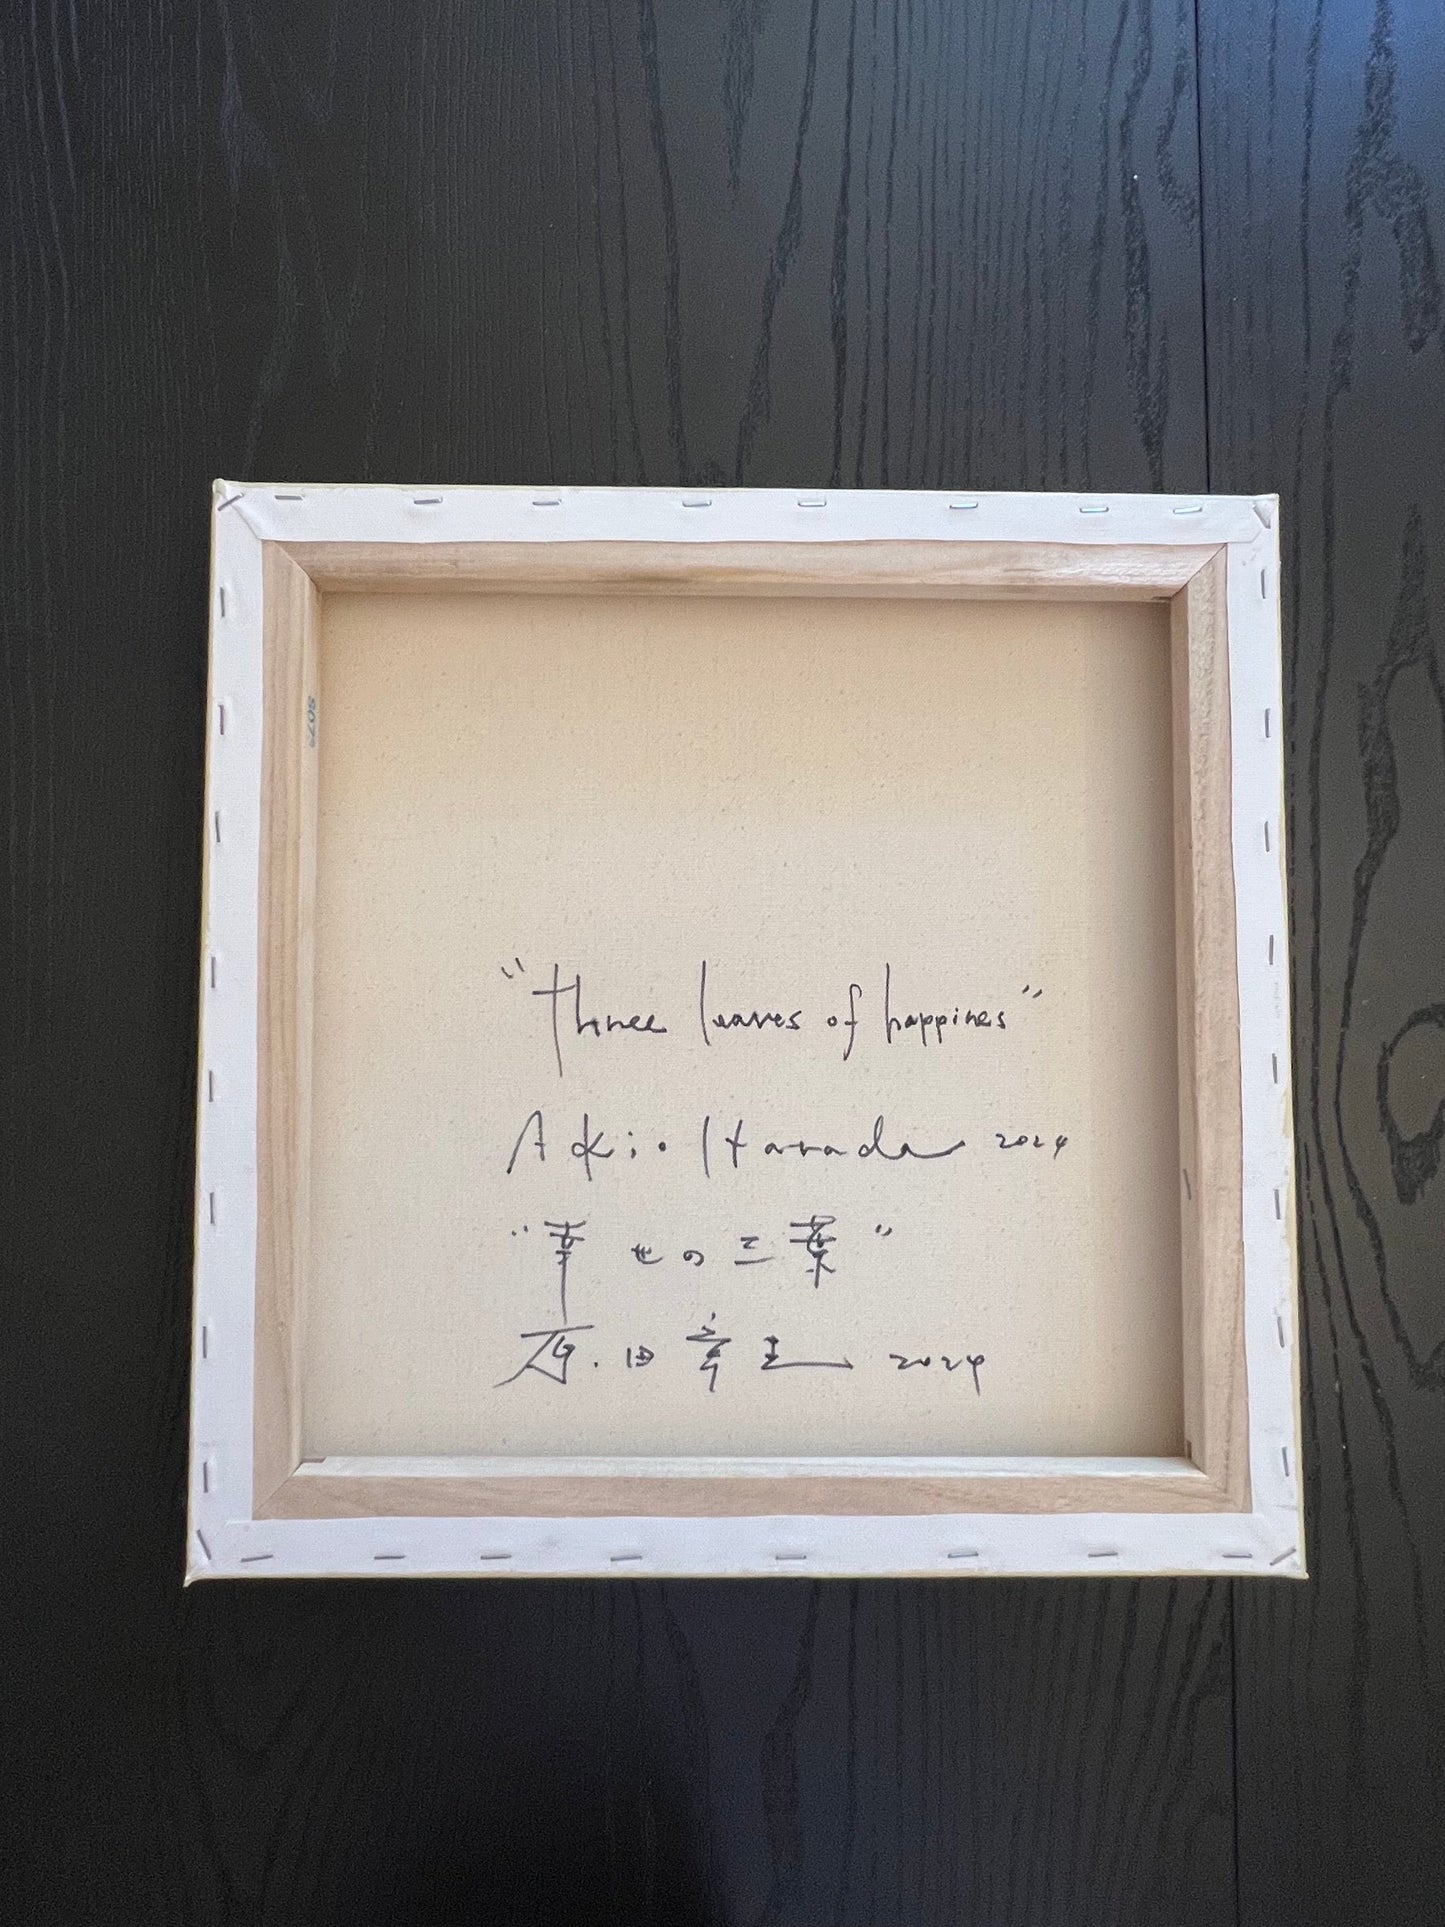 "Three leaves of happines"
Akio Harada 2024
"幸せの三葉"
原田章生 2024